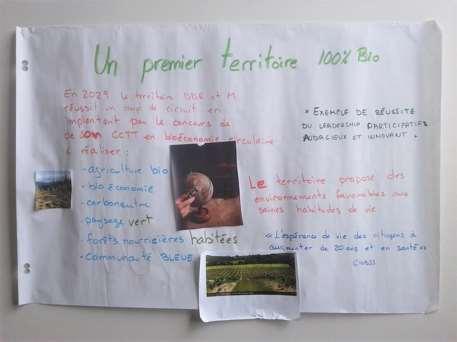 Un premier territoire 100% Bio
En 2029 le territoire DDE et M
réussit un coup de circuit en
implantant par le concours de
de son CCTT en bioéconomie circulaire
à réaliser :
- agriculture bio
- bioéconomie
- carboneutre
- paysage vert
- forêts nourricières habitées
- communauté BLEUE
" EXEMPLE DE RÉUSSITE
DU LEADERSHIP PARTICIPATIF,
AUDACIEUX ET INNOVANT "
Le territoire propose des
environnements favorables aux
saines habitudes de vie
« L'espérance de vie des citoyens à
augmenter de 20 ans et en santé »
CIUSSS